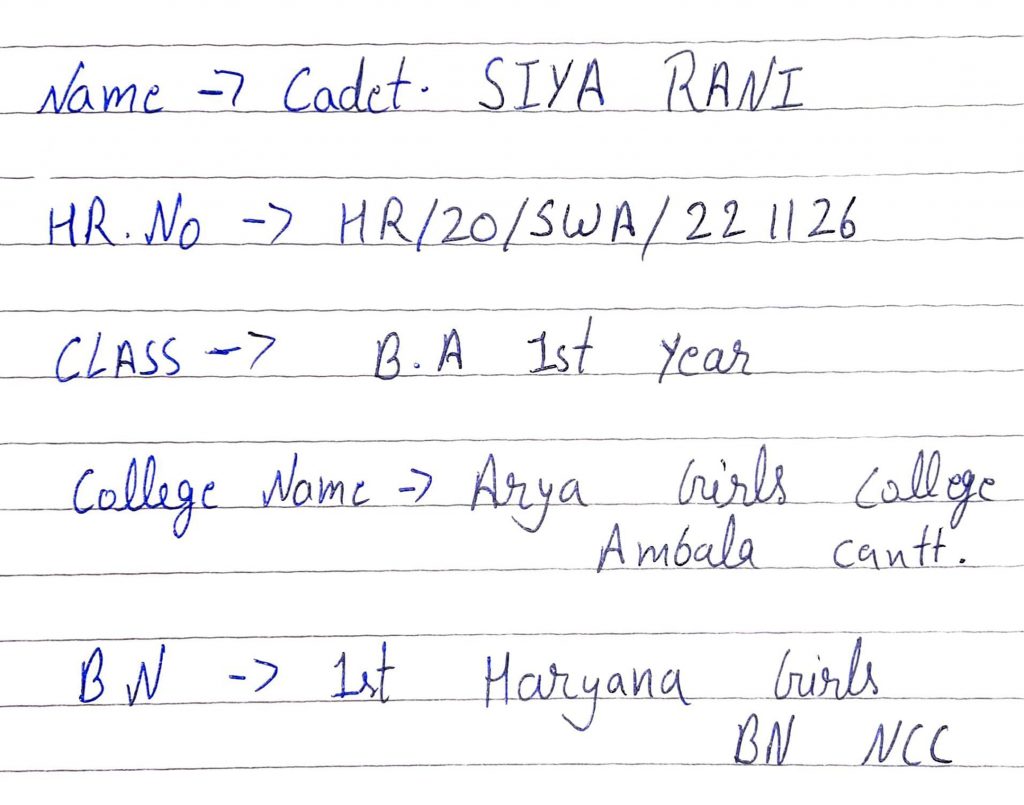 Name -> Cadet. SIYA RANI
HR.No -> HR/20/SWA/221126
CLASS -> B.A 1st Year
College Name -> Arya Girls College
Ambala Cantt.
BN -> 1st Haryana Girls
BN NCC